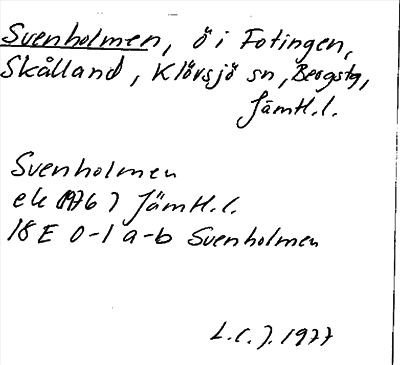 Svenholmen, ö i Fotingen,
Skålland, Klövsjö sn, Bergstg,
Jämtl.l.
Svenholmen
ek (1976) Jämtl.l.
18E 0-1 a-b Svenholmen
L.C.J. 1977